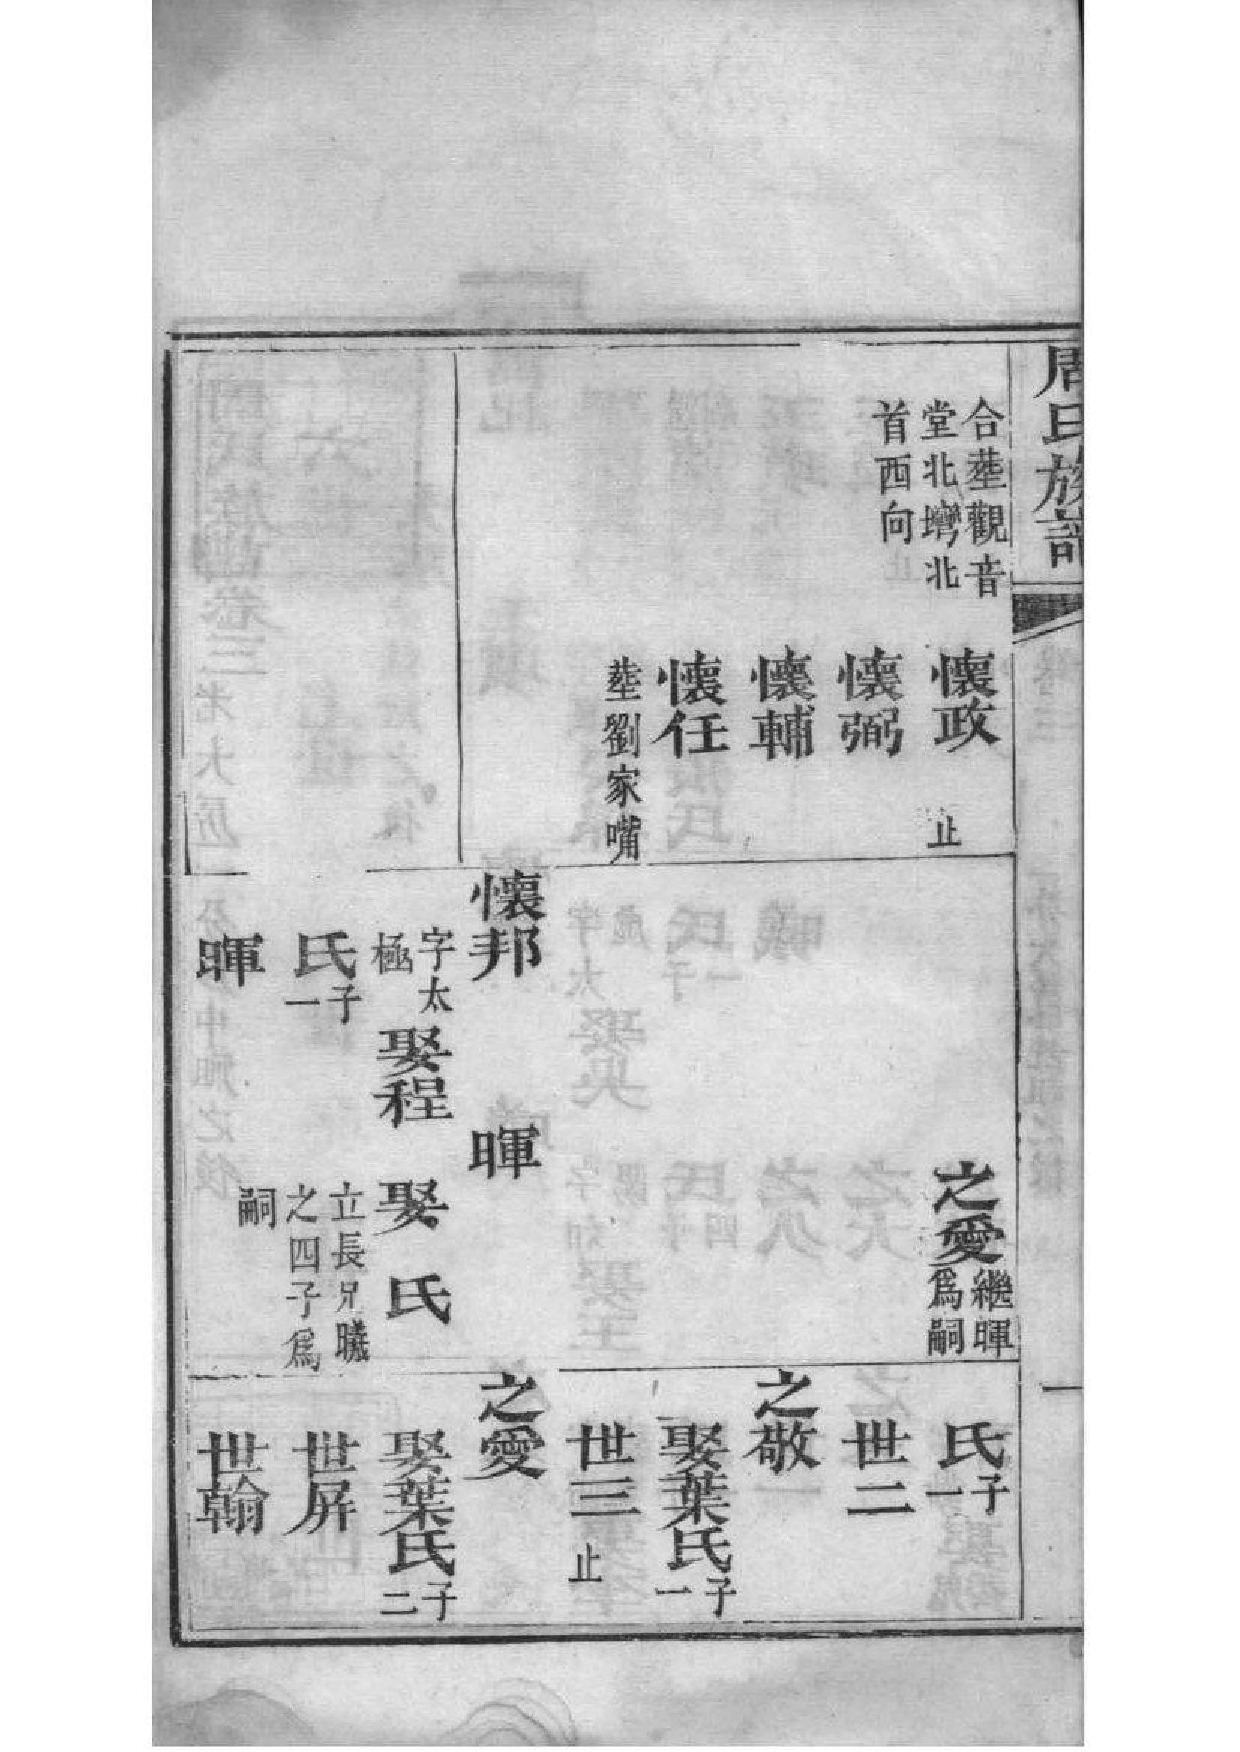 周氏族譜
合塟觀音
堂北塆北
首西向
懷政 止
懷弼
懷輔
懷任
塟劉家嘴
之愛 繼暉
爲嗣
懷邦
暉
字太
極
娶程
氏 子
一
暉
娶 氏
立長兄曦
之四子爲
嗣
氏 子
一
世二
之敬
娶葉氏 子
一
世三 止
之愛
娶葉氏 子
二
世屏
世翰